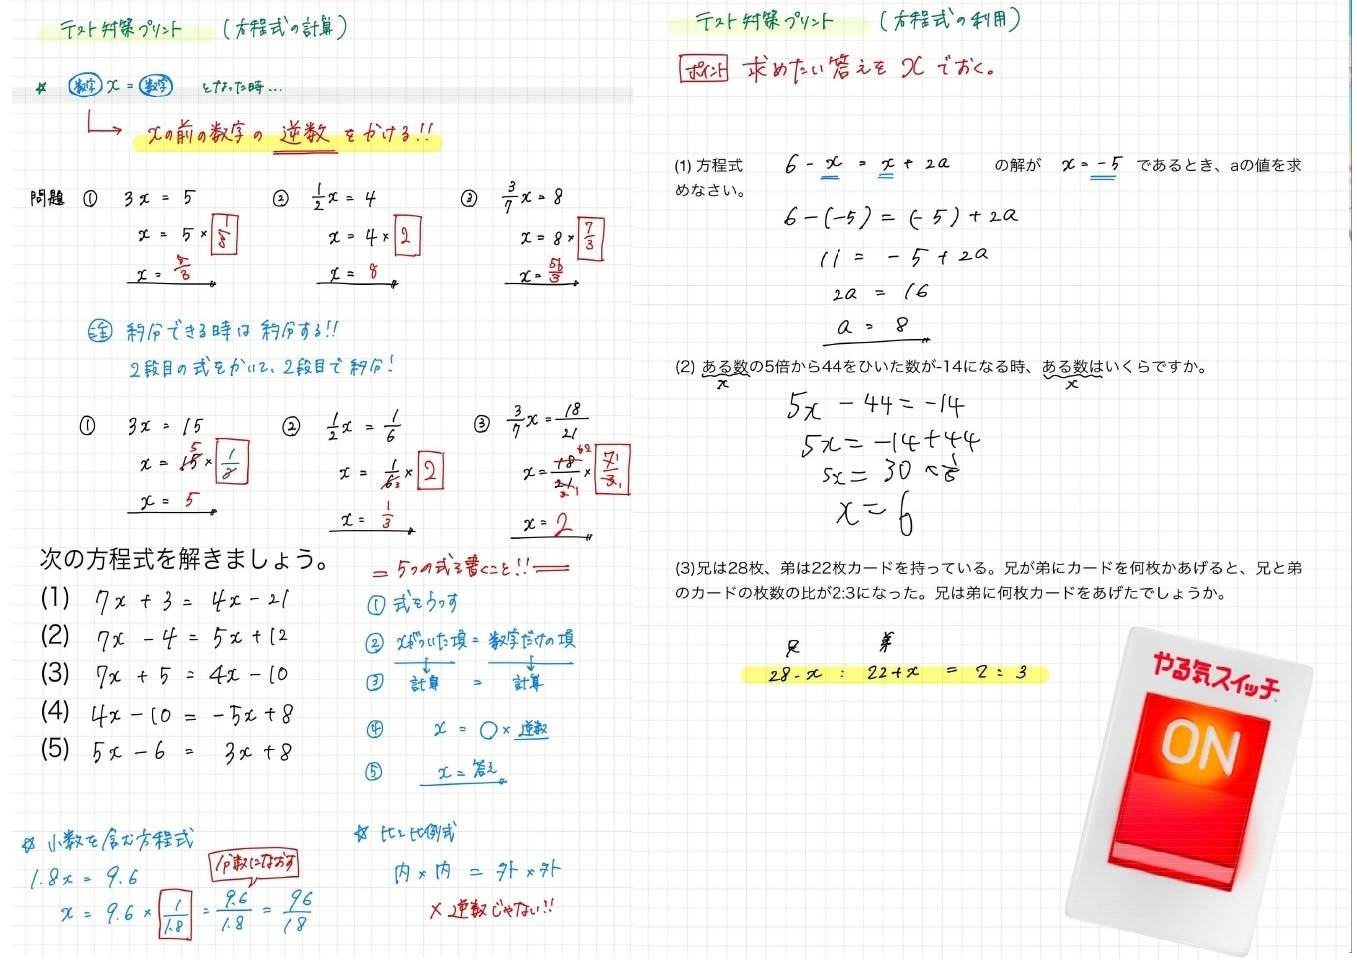 テスト対策プリント （方程式の計算）
☆ 数字 x = 数字 となった時...
xの前の数字の 逆数 をかける!!
問題 ① 3x = 5 ② 1/2 x = 4 ③ 3/7 x = 8
x = 5 × 1/3 x = 4 × 2 x = 8 × 7/3
x = 5/3 x = 8 x = 56/3
注 約分できる時は約分する!!
2段目の式をかいて、2段目で約分!
① 3x = 15 ② 1/2 x = 1/6 ③ 3/7 x = 18/21
x = 15 5 × 1/3 x = 1/6 3 × 2 x = 18/21 × 7/3
x = 5 x = 1/3 x = 2
次の方程式を解きましょう。
= 5つの式を書くこと!! =
(1) 7x + 3 = 4x - 21
(2) 7x - 4 = 5x + 12
(3) 7x + 5 = 4x - 10
(4) 4x - 10 = -5x + 8
(5) 5x - 6 = 3x + 8
① 式をうつす
② xがついた項 = 数字だけの項
③ 計算 = 計算
④ x = ○ × 逆数
⑤ x = 答え
☆ 小数を含む方程式
1.8x = 9.6
分数になおす
x = 9.6 × 1/1.8 = 9.6/1.8 = 96/18
☆ 比と比例式
内 × 内 = 外 × 外
× 逆数じゃない!!
テスト対策プリント （方程式の利用）
ポイント 求めたい答えを x でおく。
(1) 方程式 6 - x = x + 2a の解が x = -5 であるとき、aの値を求
めなさい。
6 - (-5) = (-5) + 2a
11 = -5 + 2a
2a = 16
a = 8
(2) ある数の5倍から44をひいた数が-14になる時、ある数はいくらですか。
x x
5x - 44 = -14
5x = -14 + 44
5x = 30 × 1/5
x = 6
(3)兄は28枚、弟は22枚カードを持っている。兄が弟にカードを何枚かあげると、兄と弟
のカードの枚数の比が2:3になった。兄は弟に何枚カードをあげたでしょうか。
兄 弟
28 - x : 22 + x = 2 : 3
やる気スイッチ
ON